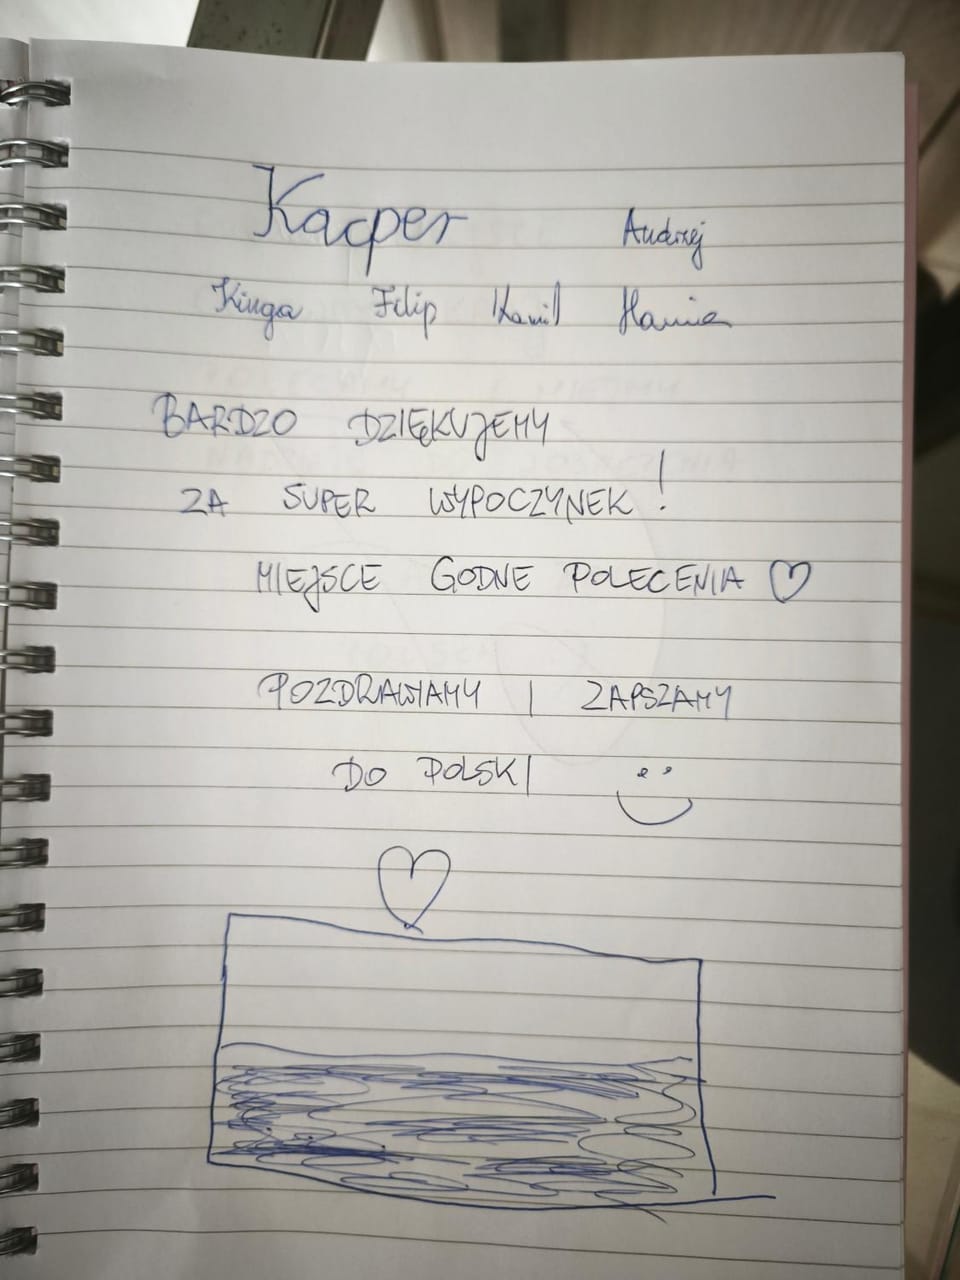 Kacper Andrzej
Kinga Filip Kamil Hania
BARDZO DZIĘKUJEMY
ZA SUPER WYPOCZYNEK!
MIEJSCE GODNE POLECENIA ♡
POZDRAWIAMY I ZAPSZAMY
DO POLSKI